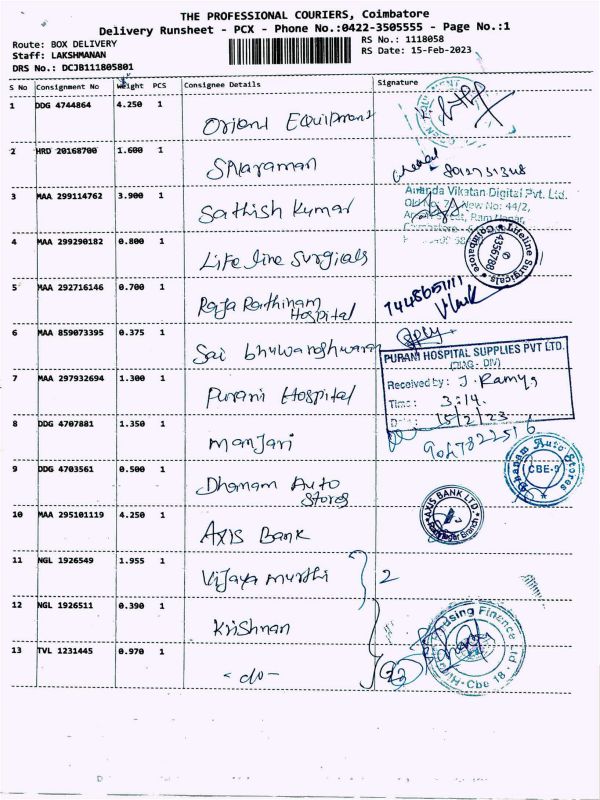 THE PROFESSIONAL COURIERS, Coimbatore
Delivery Runsheet - PCX - Phone No.:0422-3505555 - Page No.:1
Route: BOX DELIVERY
RS No.: 1118058
Staff: LAKSHMANAN
RS Date: 15-Feb-2023
DRS No.: DCJB111805801
S No Consignment No Weight PCS Consignee Details Signature
1 DDG 4744864 4.250 1
Orient Equipment
2 HRD 20168700 1.600 1
Sivaraman
3 MAA 299114762 3.900 1
Sathish Kumar
Ananda Vikatan Digital Pvt. Ltd.
New No: 44/2,
4 MAA 299290182 0.800 1
Life line Surgicals
Lifeline Surgicals
Coimbatore
4356788
5 MAA 292716146 0.700 1
Raja Rathinam
Hospital
6 MAA 859073395 0.375 1
Sai bhuwaneshwaran
PURANI HOSPITAL SUPPLIES PVT LTD.
(DIAG - DIV)
7 MAA 297932694 1.300 1
Purani Hospital
Received by: J. Ramya
Time: 3:14.
Date: 15/2/23
8 DDG 4707881 1.350 1
Manjari
9047822516
9 DDG 4703561 0.500 1
Dhanam Auto
Stores
Dhanam Auto Stores
CBE-9
10 MAA 295101119 4.250 1
Axis Bank
AXIS BANK LTD.
11 NGL 1926549 1.955 1
Vijaya murthi
2
12 NGL 1926511 0.390 1
Krishnan
Housing Finance Ltd
Cbe 18
13 TVL 1231445 0.970 1
- do -